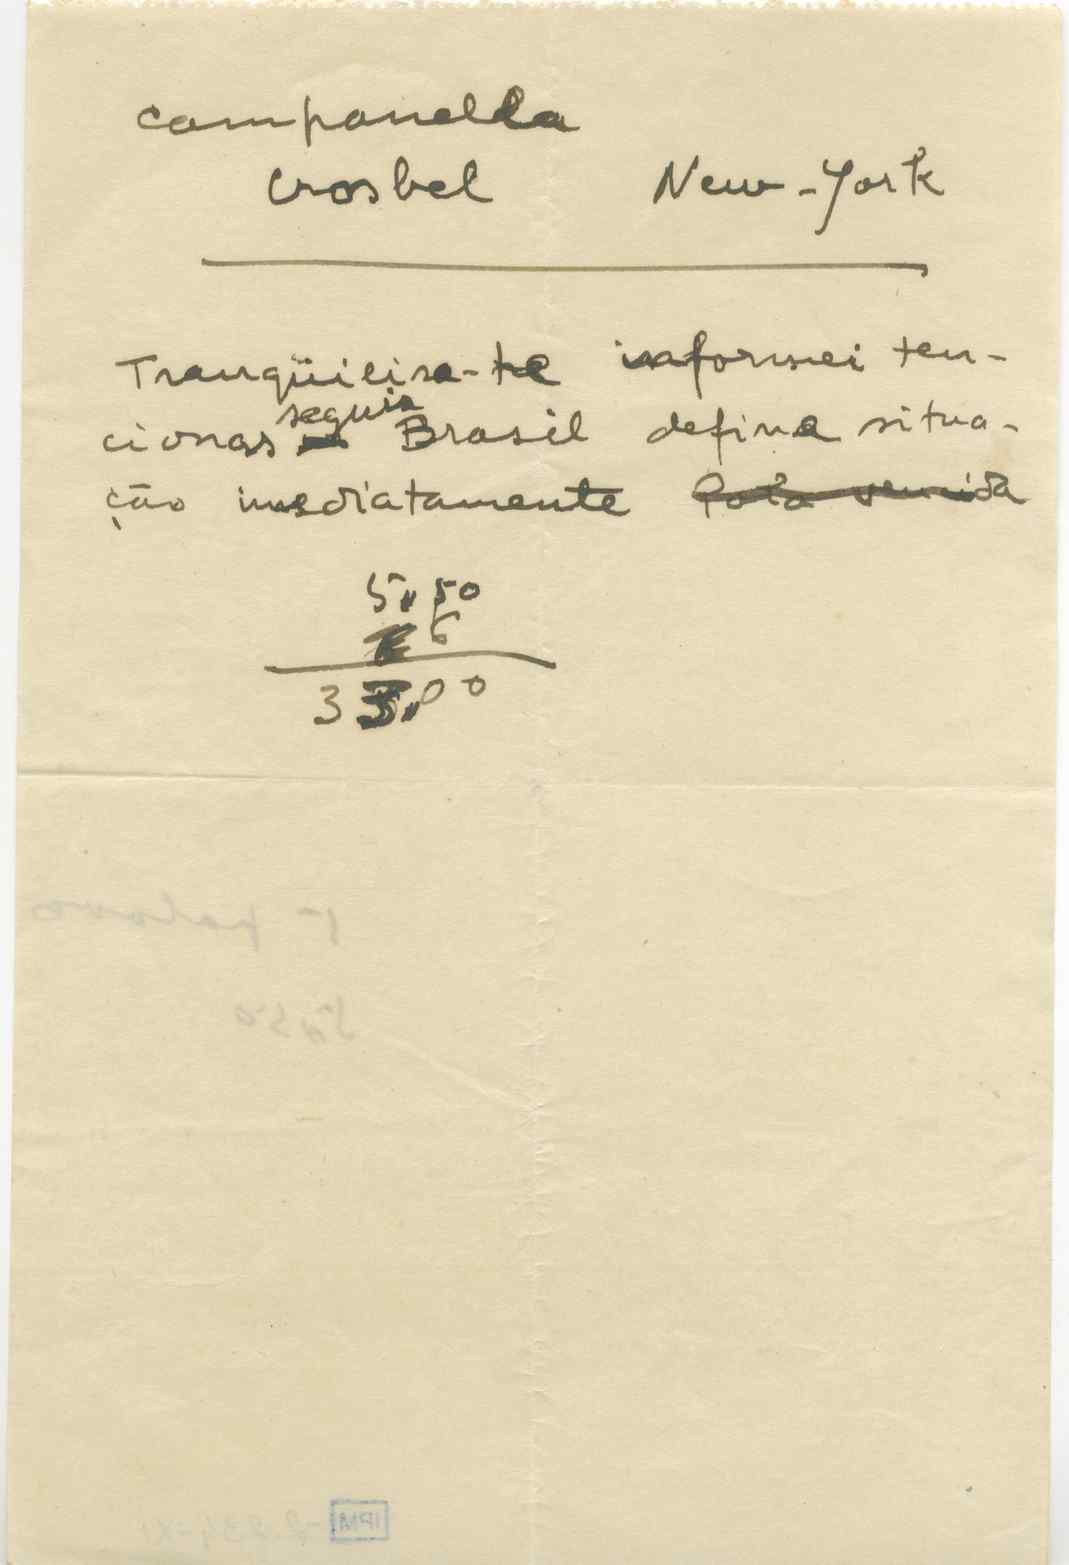 Campanella
Crosbel New-York
Tranqüiliza-te informei ten-
seguir
cionas Brasil define situa-
ção imediatamente
5,50
6
33,00
1 palavra
5,50
IPM